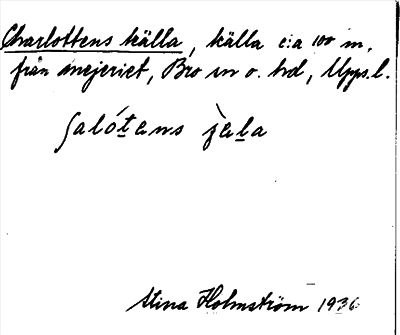 Charlottens källa, källa c:a 100 m.
från mejeriet, Bro sn o. hd, Upps. l.
ʃalótens jàla
Stina Holmström 1936